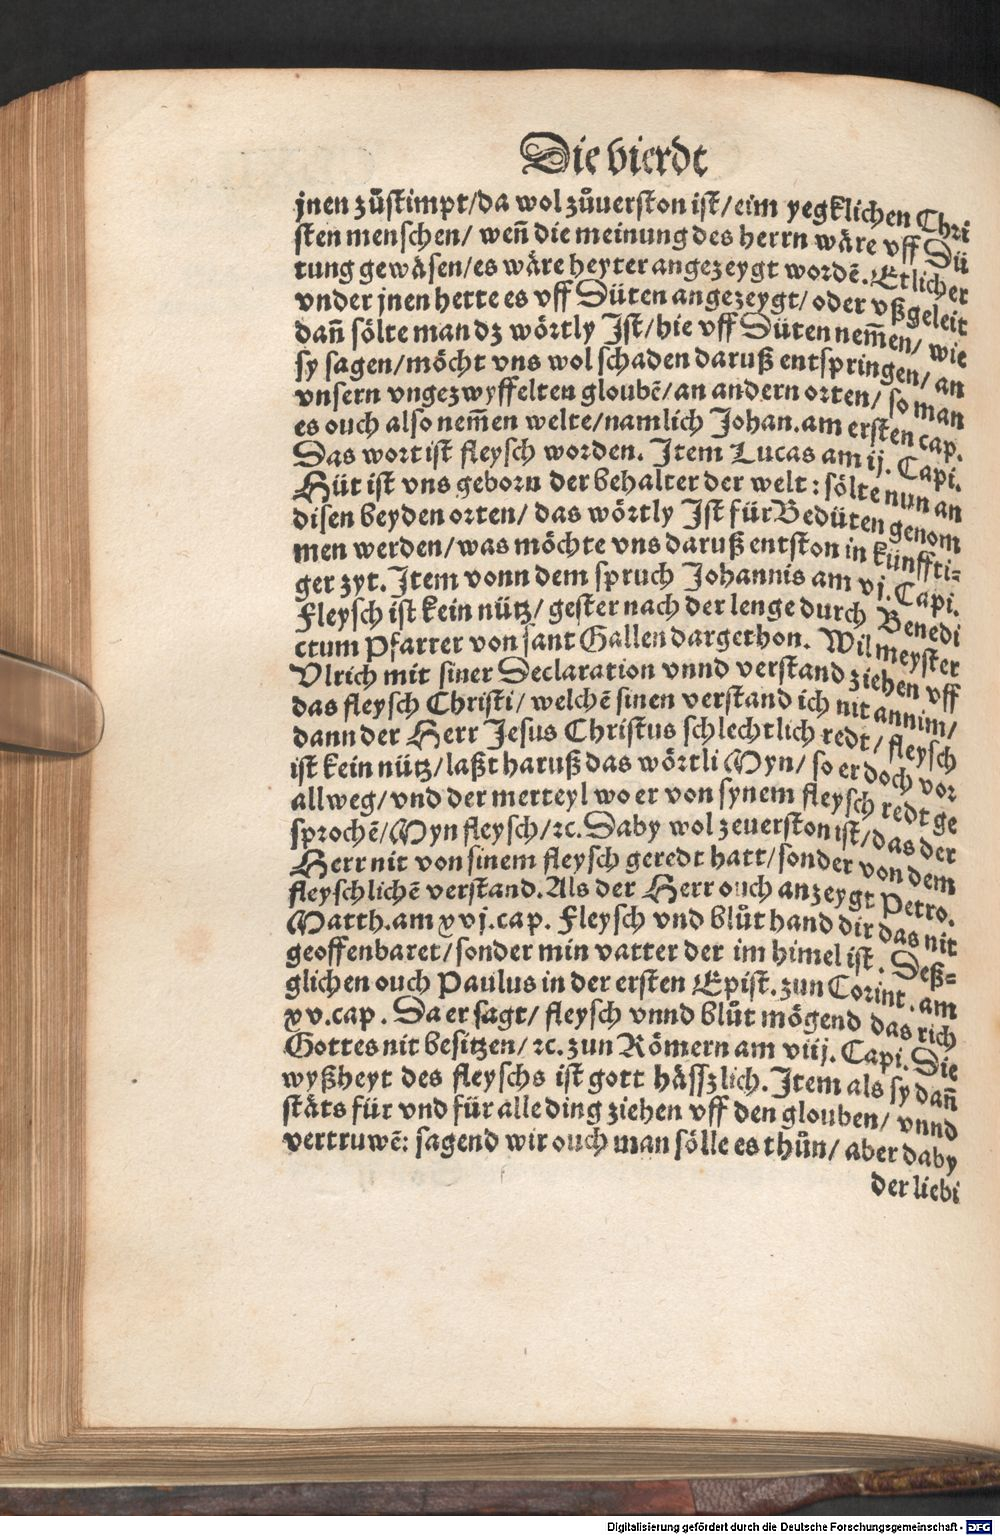 Die vierdt
jnen zůstimpt/da wol zůuerston ist/eim yegklichen Chri
sten menschen/ weñ die meinung des herrn wäre vff Dü
tung gewäsen/es wäre heyter angezeygt wordẽ. Etlicher
vnder jnen hette es vff Düten angezeygt/ oder vßgeleit
dañ sölte man dz wörtly Jst/hie vff Düten nem̃en/ wie
sy sagen/möcht vns wol schaden daruß entspringen/ an
vnsern vngezwyffelten gloubẽ/an andern orten/ so man
es ouch also nem̃en welte/namlich Johan.am ersten cap.
Das wort ist fleysch worden. Jtem Lucas am ij. Capi.
Hüt ist vns geborn der behalter der welt: sölte nun an
disen beyden orten/ das wörtly Jst für Bedüten genom
men werden/was möchte vns daruß entston in künffti-
ger zyt. Jtem vonn dem spruch Johannis am vj. Capi.
Fleysch ist kein nütz/ gester nach der lenge durch Benedi
ctum Pfarrer von sant Gallen dargethon. Wil meyster
Vlrich mit siner Declaration vnnd verstand ziehen vff
das fleysch Christi/ welchẽ sinen verstand ich nit annim/
dann der Herr Jesus Christus schlechtlich redt/ fleysch
ist kein nütz/laßt haruß das wörtli Myn/ so er doch vor
allweg/vnd der merteyl wo er von synem fleysch redt ge
sprochẽ/Myn fleysch/ꝛc. Daby wol zeuerston ist/das der
Herr nit von sinem fleysch geredt hatt/sonder von dem
fleyschlichẽ verstand. Als der Herr ouch anzeygt Petro.
Matth.am xvj.cap. Fleysch vnd blůt hand dir das nit
geoffenbaret/sonder min vatter der im himel ist. Deß-
glichen ouch Paulus in der ersten Epist.zun Corint.am
xv.cap. Da er sagt/ fleysch vnnd blůt mögend das rich
Gottes nit besitzen/ ꝛc. zun Römern am viij. Capi. Die
wyßheyt des fleyschs ist gott hässzlich. Jtem als sy dañ
stäts für vnd für alle ding ziehen vff den glouben/ vnnd
vertruwẽ: sagend wir ouch man sölle es thůn/ aber daby
der liebi
Digitalisierung gefördert durch die Deutsche Forschungsgemeinschaft - DFG